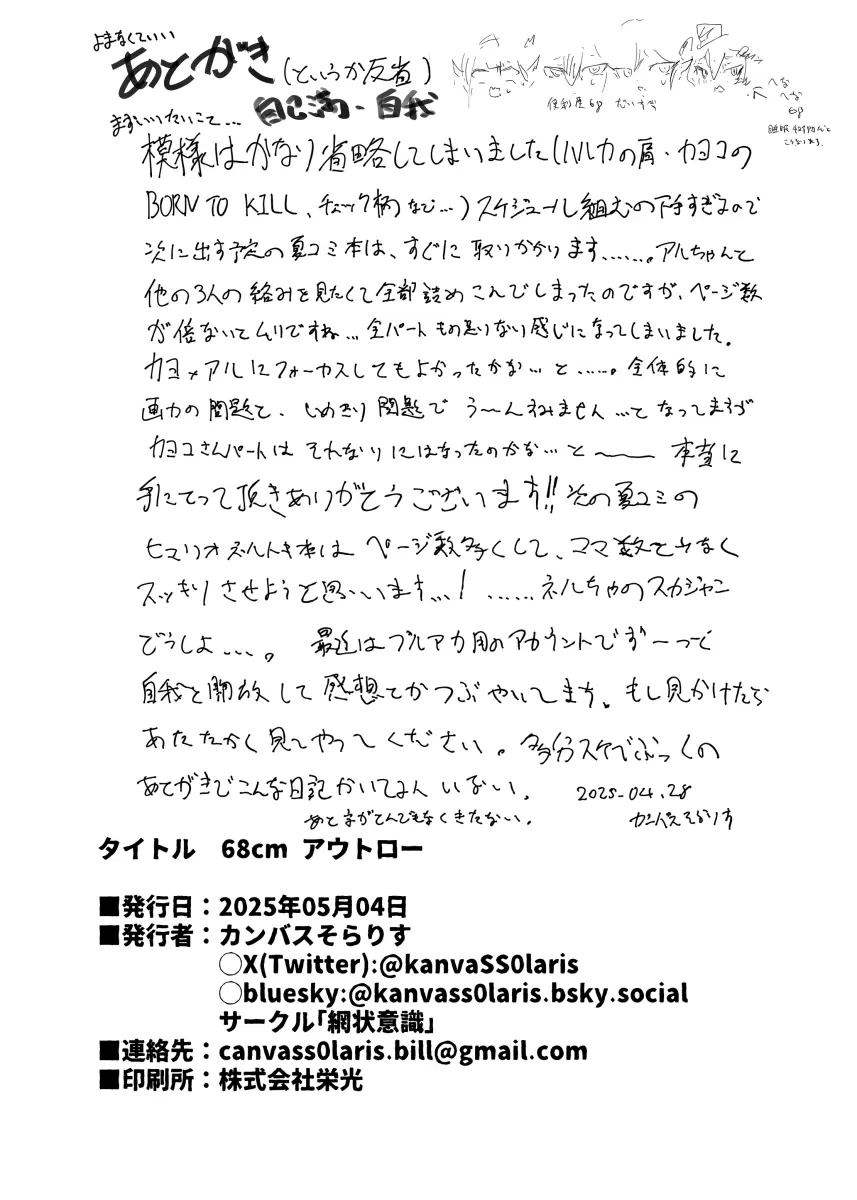 よまなくていい
あとがき(というか反省)
自己満・自我
まずいいたいこと…
便利屋68 だいすき
へな
へな
68
模様はかなり省略してしまいました(ハルカの肩・カヨコの
BORN TO KILL、チェック柄など…)スケジュール組むの下手すぎるので
次に出す予定の夏コミ本は、すぐに取りかかります……。アルちゃんと
他の3人の絡みを見たくて全部詰めこんでしまったのですが、ページ数
が倍ないとムリですね…全パートもの足りない感じになってしまいました。
カヨ×アルにフォーカスしてもよかったかな…と……。全体的に
画力の問題と、しめきり問題でう〜んすみません…となってますが
カヨコさんパートはそれなりにはなったのかな…と〜 本当に
手にとって頂きありがとうございます!!次の夏コミの
ヒマリオネルトキ本はページ数多くして、コマ数を少なく
スッキリさせようと思います…! ……ネルちゃのスカジャン
どうしよ…。 最近はブルアカ用のアカウントでずーっと
自我を開放して感想とかつぶやいてます。もし見かけたら
あたたかく見てやってください。多分スケベぶっくの
あとがきでこんな日記かいてる人いない。 2025-04.28
あと字がとんでもなくきたない。 カンバスそらりす
タイトル 68cm アウトロー
■発行日：2025年05月04日
■発行者：カンバスそらりす
○X(Twitter):@kanvaSS0laris
○bluesky:@kanvass0laris.bsky.social
サークル「網状意識」
■連絡先：canvass0laris.bill@gmail.com
■印刷所：株式会社栄光